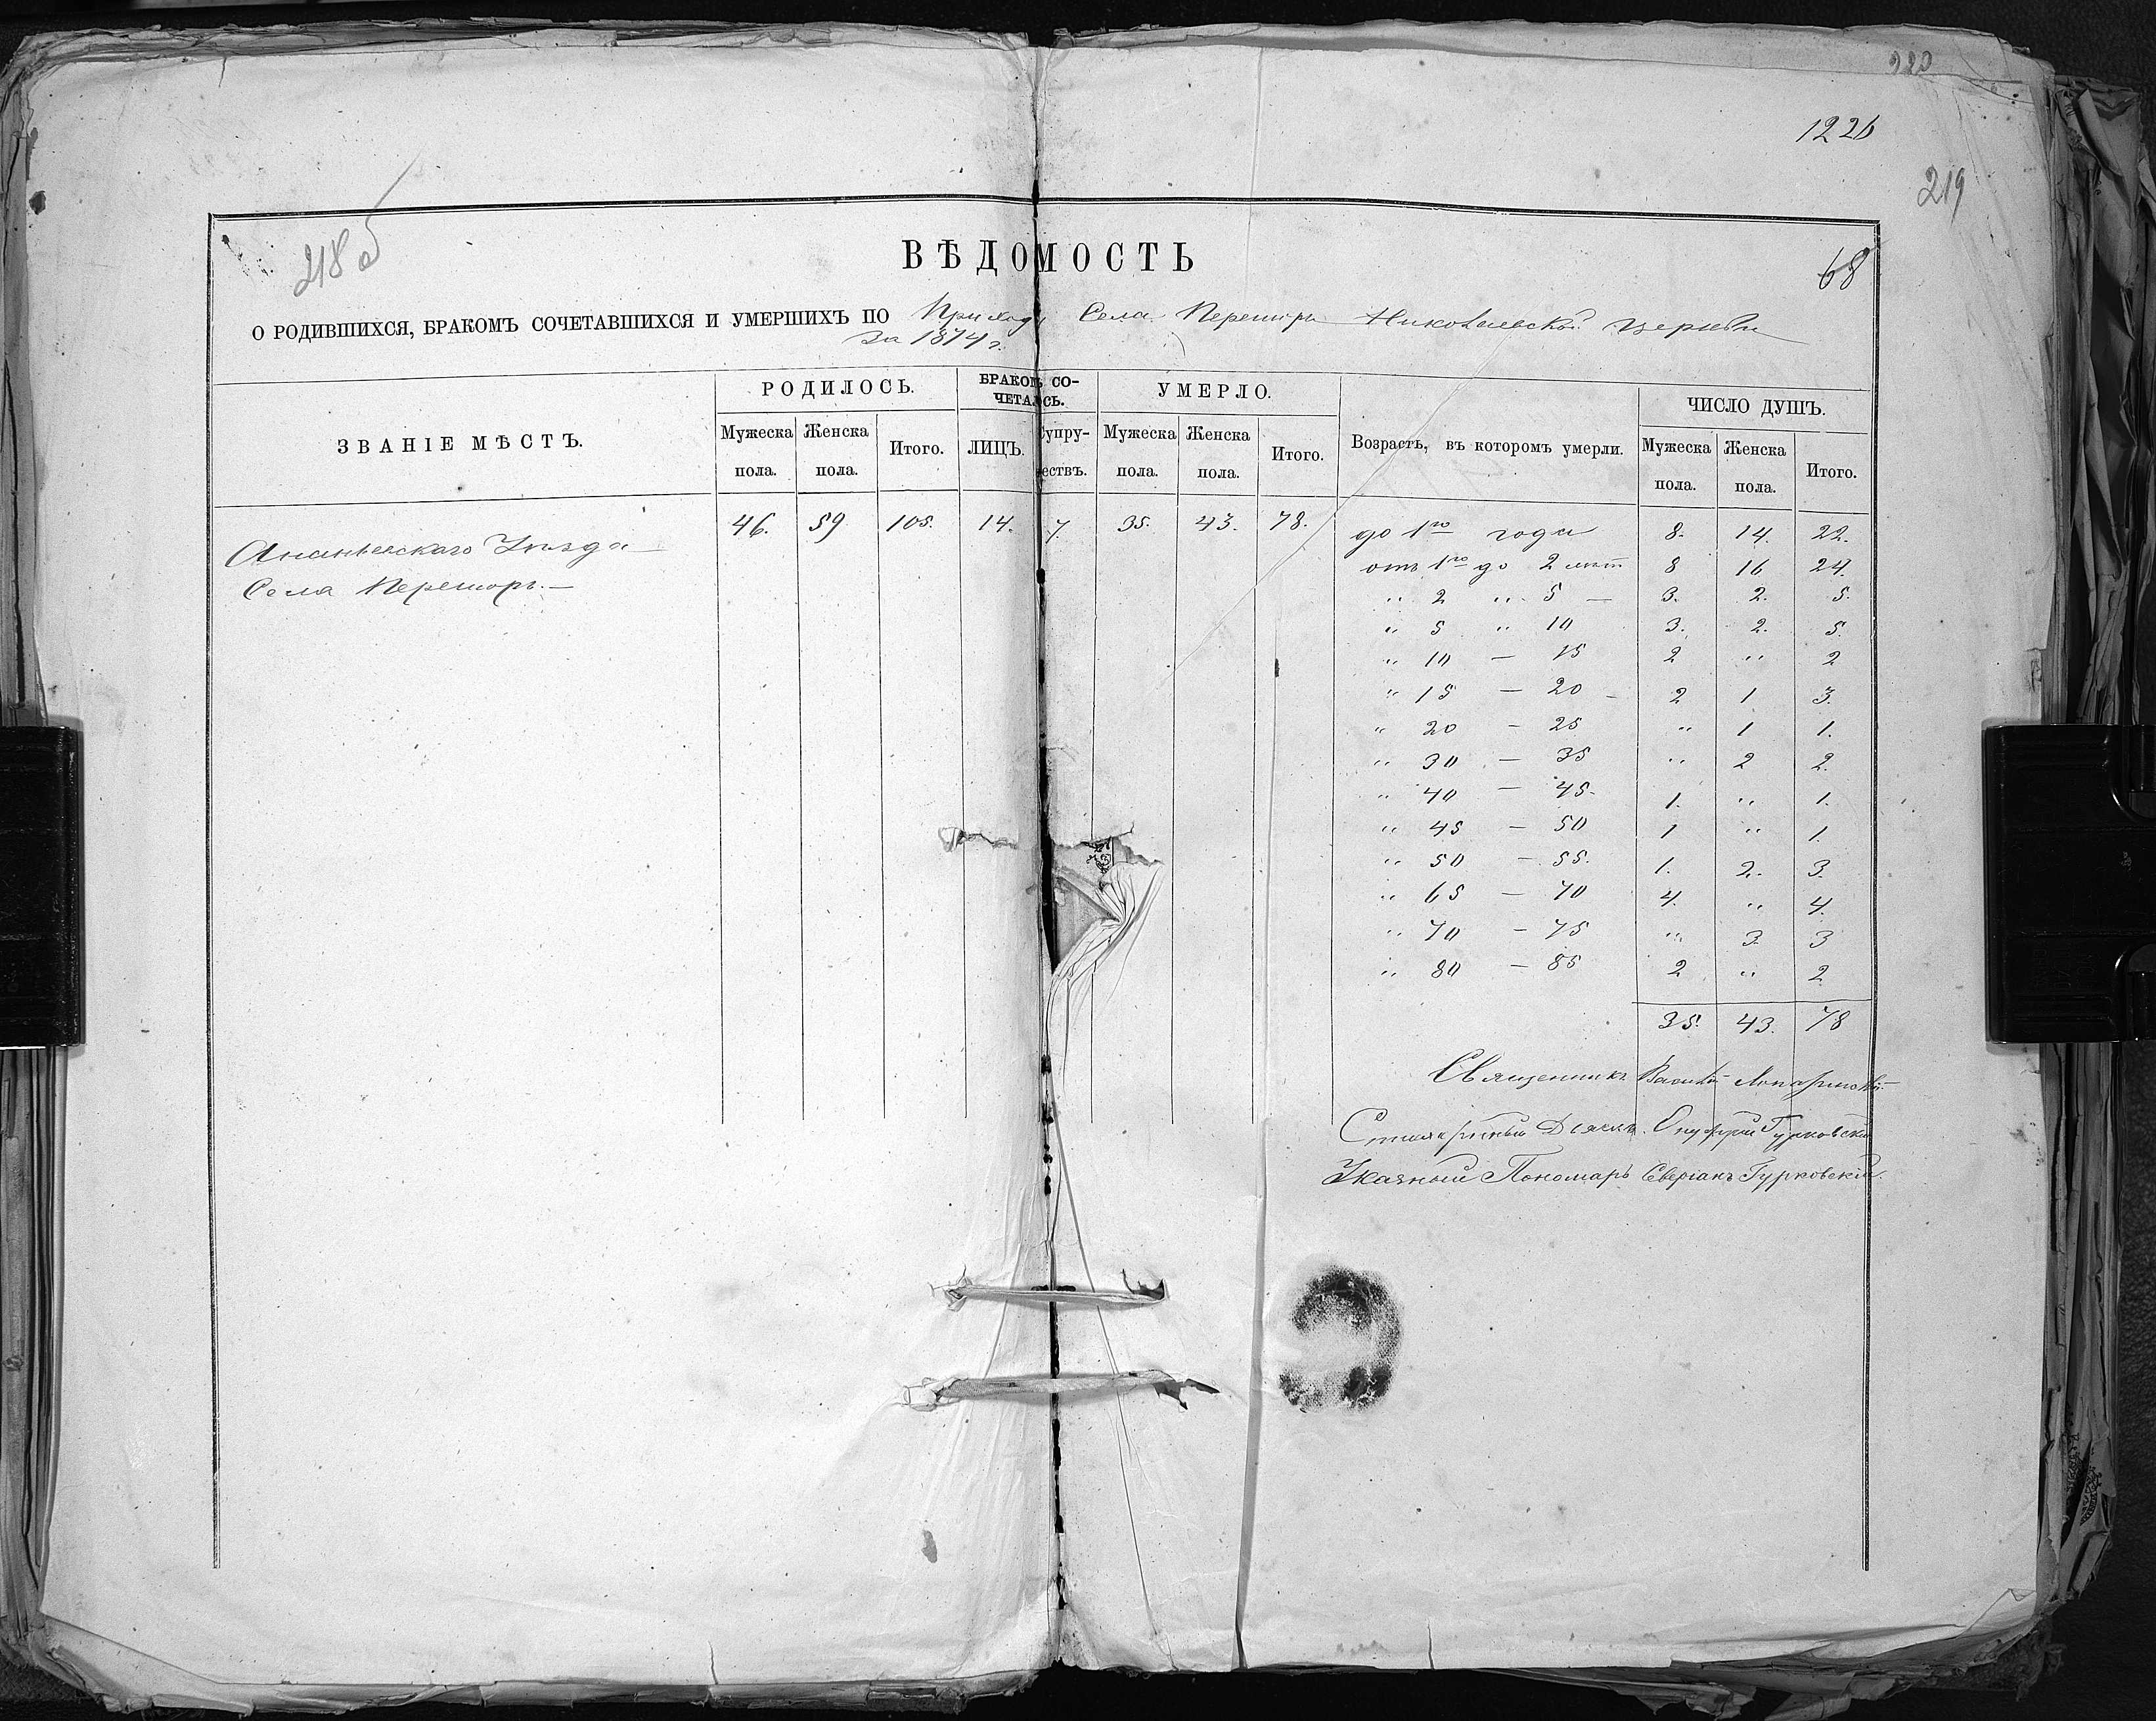 220
1226
219
218 об
68
ВѢДОМОСТЬ
О РОДИВШИХСЯ, БРАКОМЪ СОЧЕТАВШИХСЯ И УМЕРШИХЪ ПО Приходу Села Перешоръ Николаевской церкви
за 1874 г.
ЗВАНІЕ МѢСТЪ. РОДИЛОСЬ. БРАКОМЪ СОЧЕТАЛОСЬ. УМЕРЛО. Возрастъ, въ которомъ умерли. ЧИСЛО ДУШЪ.
Мужеска пола. Женска пола. Итого. ЛИЦЪ. Супружествъ. Мужеска пола. Женска пола. Итого. Мужеска пола. Женска пола. Итого.
Ананьевскаго Уѣзда 46. 59 105. 14. 7. 35. 43. 78.
Села Перешоръ. —
до 1го года 8. 14. 22.
отъ 1го до 2 лѣтъ 8 16 24.
" 2 " 5 — 3. 2. 5.
" 5 " 10 3. 2. 5.
" 10 — 15 2 " 2
" 15 — 20 – 2 1 3.
" 20 — 25 " 1 1.
" 30 — 35 " 2 2.
" 40 — 45. 1. " 1.
" 45 — 50 1 " 1.
" 50 — 55. 1. 2. 3
" 65 — 70 4. " 4.
" 70 — 75 " 3. 3
" 80 — 85 2 " 2
35. 43. 78
Священникъ Василій
Стихарный Дьячекъ Онуфрій Гурковскій
Указный Пономарь Северіанъ Гурковскій.